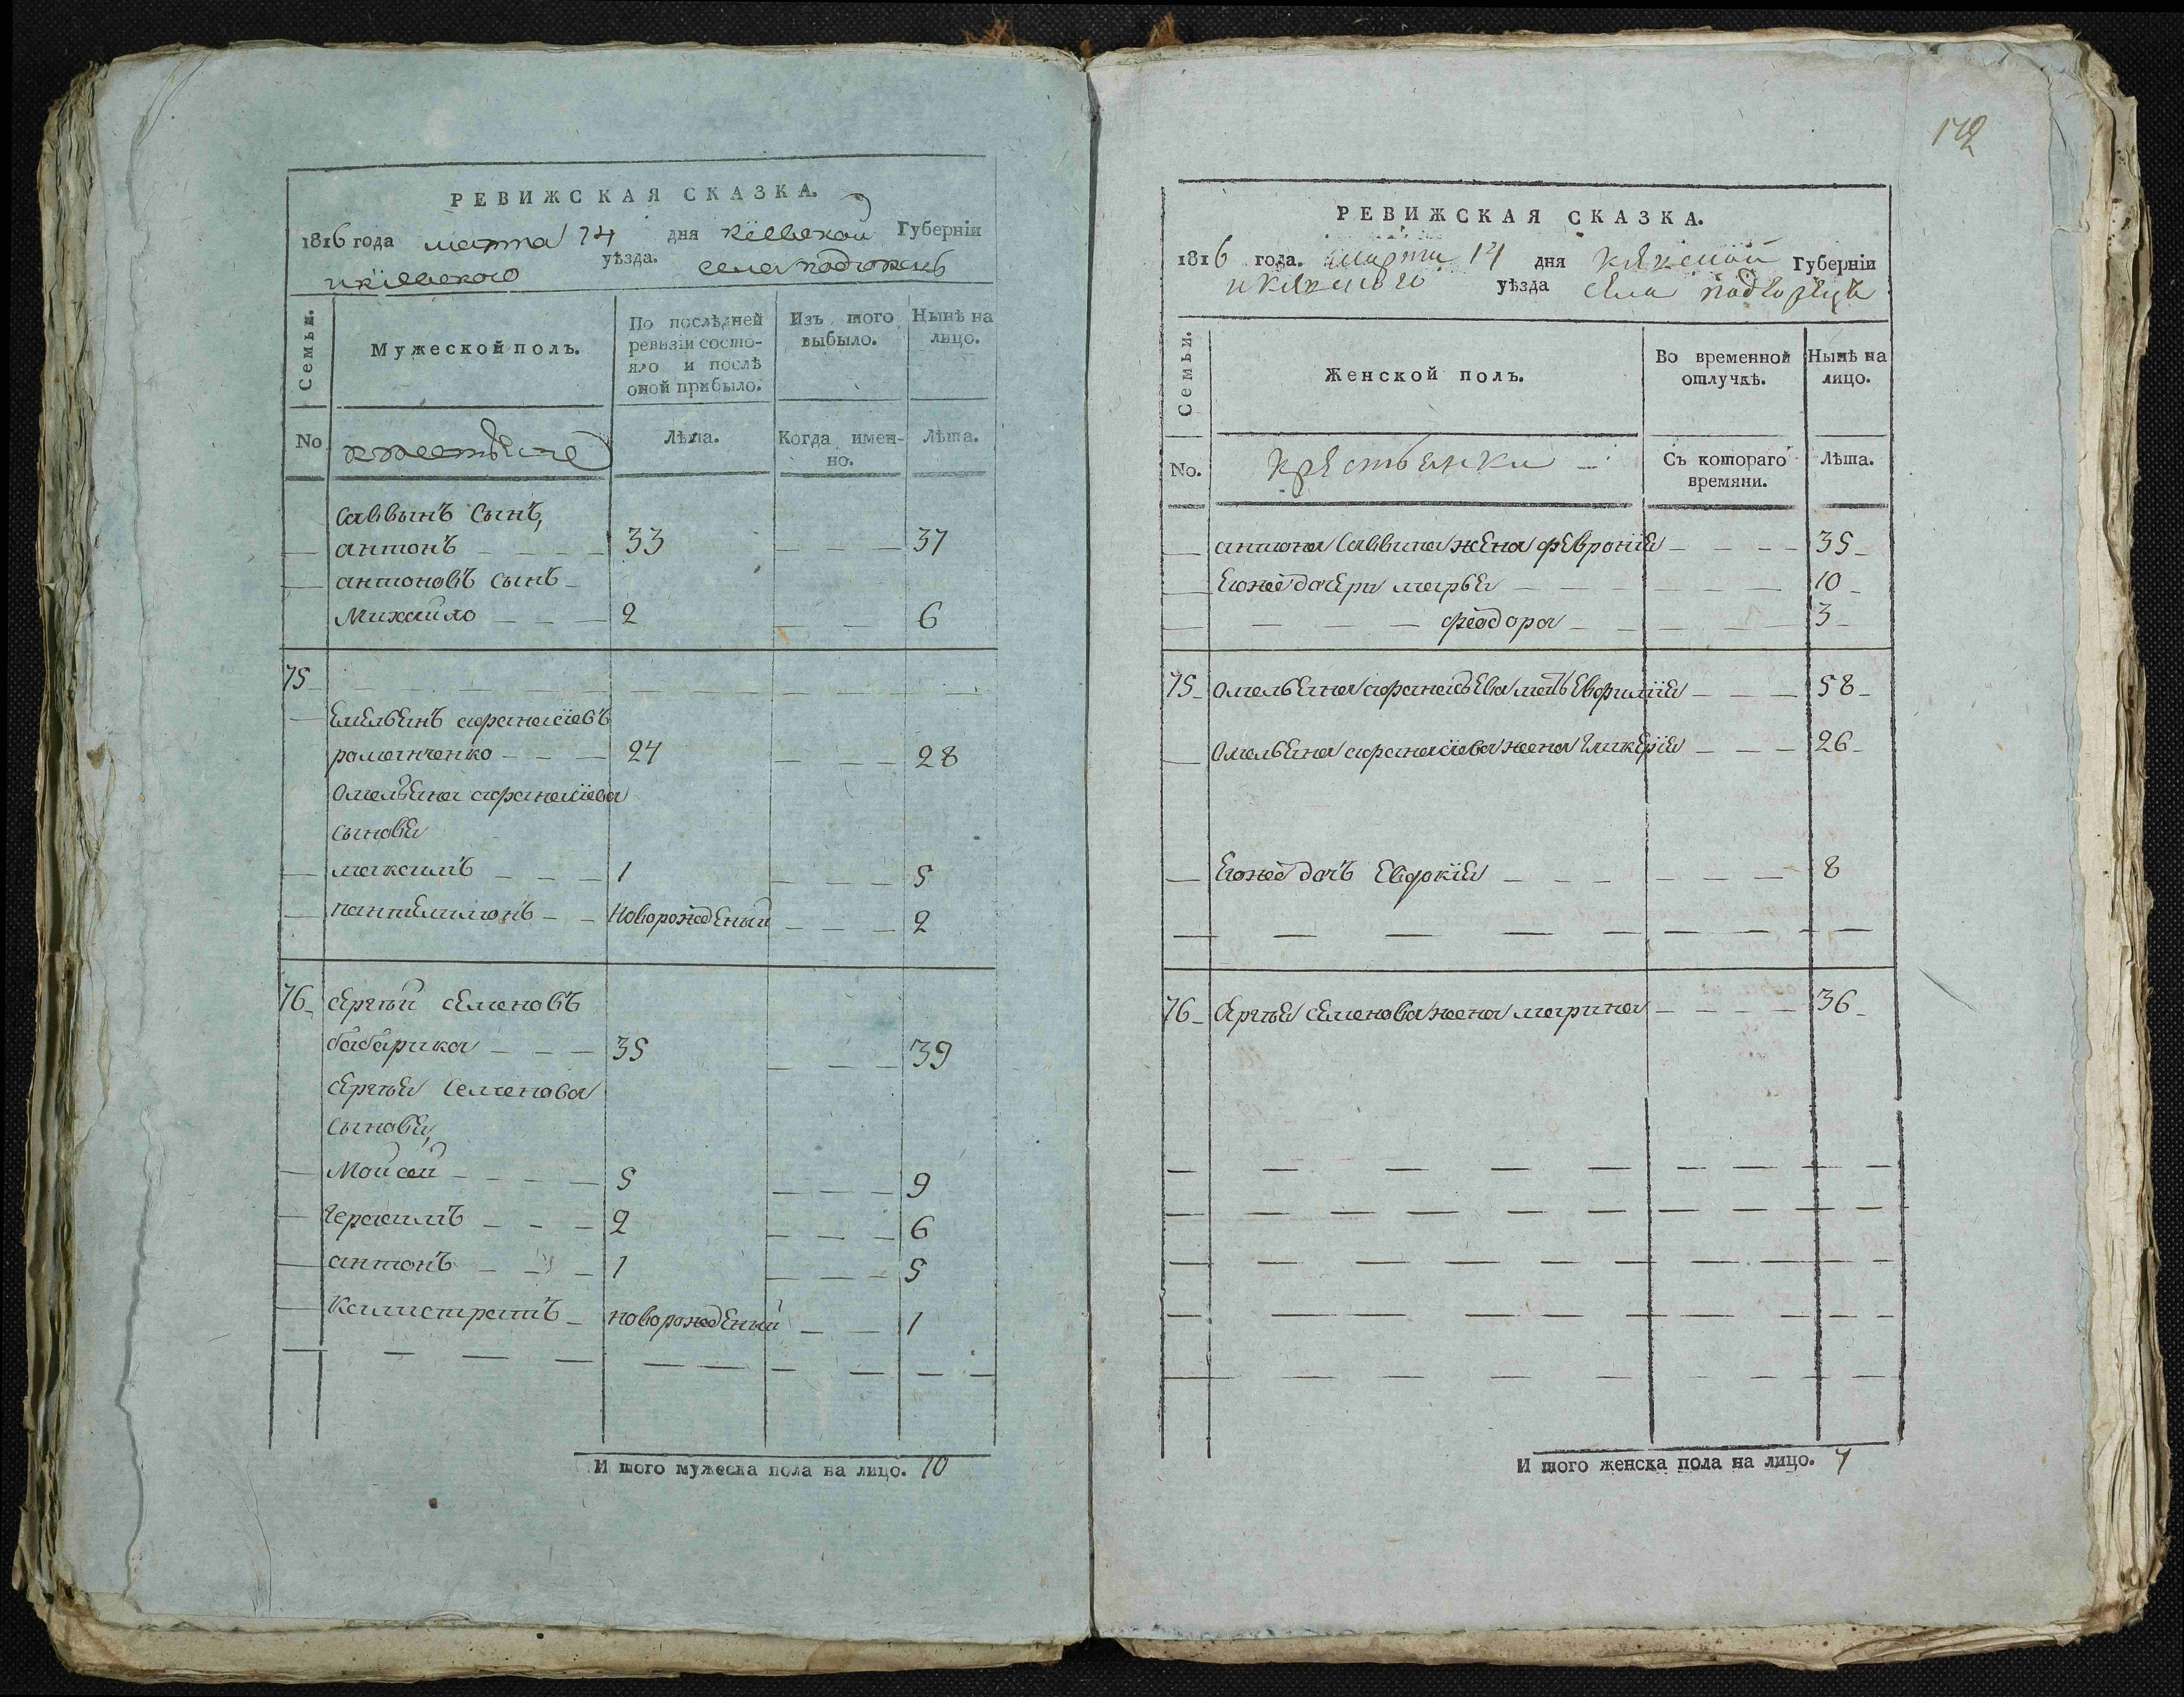 РЕВИЖСКАЯ СКАЗКА.
1816 года марта 14 дня кіевской Губерніи
и кіевского уѣзда. села подгорецъ
Семьи.
Мужеской полъ.
По послѣдней ревизіи состояло и послѣ оной прибыло.
Изъ того выбыло.
Нынѣ на лицо.
No
крестьяне
Лѣта.
Когда именно.
Лѣта.
саввинъ сынъ,
антонъ 33 37
антоновъ сынъ
Михайло 2 6
75
Емельянъ афанасіевъ
романченко 24 28
Омельяна афанасіева
сыновья
максимъ 1 5
пантелимонъ Новорожденый 2
76 сергѣй семеновъ
бабарика 35 39
сергѣя семенова
сыновья,
Мойсей 5 9
герасимъ 2 6
антонъ 1 5
Калистратъ новорожденый 1
И того мужеска пола на лицо. 10
172
РЕВИЖСКАЯ СКАЗКА.
1816 года. марта 14 дня Кіевской Губерніи
и Кіевского уѣзда села подгорецъ
Семьи.
Женской полъ.
Во временной отлучкѣ.
Нынѣ на лицо.
No.
крестьянки
Съ котораго времяни.
Лѣта.
антона саввина жена февронія 35
Егоже дочери марья 10
феодора 3
75 омельяна афанасьева мать Евфимія 58
Омельяна афанасіева жена гликерія 26
Егоже дочь Евдокія 8
76 сергѣя семенова жена марина 36
И того женска пола на лицо. 7